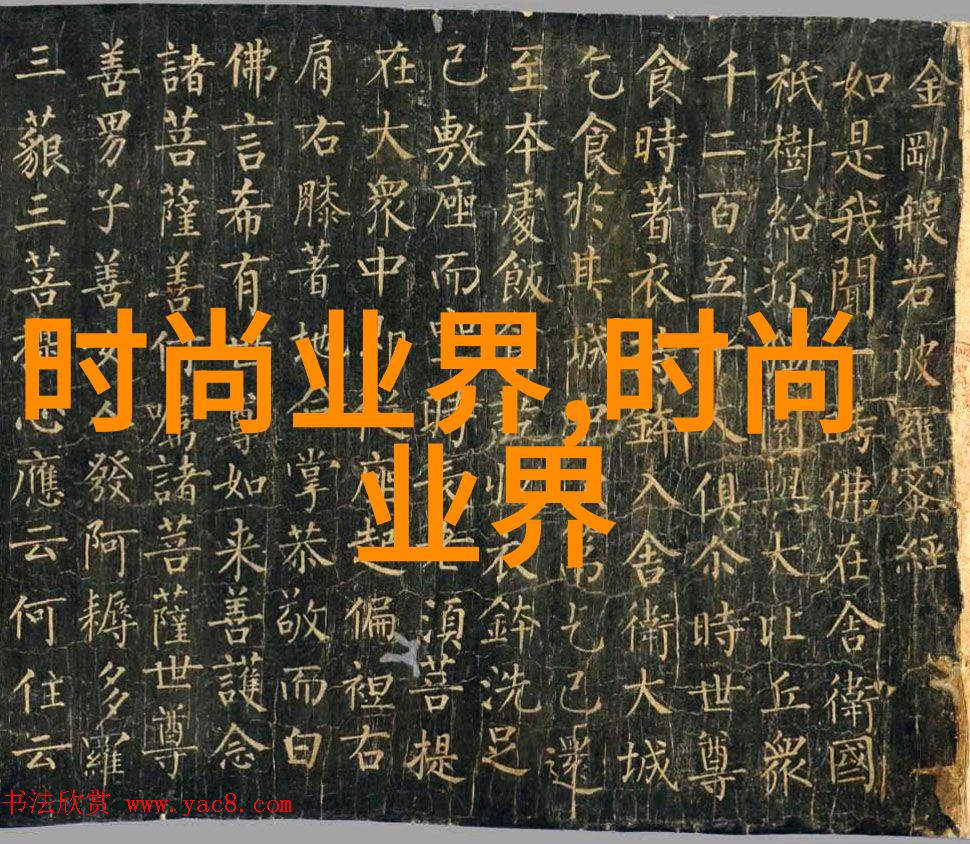 金剛般若波羅蜜經
如是我聞一時佛在舍衛國
祇樹給孤獨園與大比丘眾
千二百五十人俱尒時世尊
食時著衣持鉢入舍衛大城
乞食於其城乞已還
至本處飯食訖收衣鉢洗足
已敷座而坐時長老須菩提
在大眾中即從座起偏袒右
肩右膝著地合掌恭敬而白
佛言希有世尊如来善護念
諸菩薩善付嘱諸菩薩世尊
善男子善女人發阿耨多羅
三藐三菩提心應云何住云
时尚业界,时尚
业界
书法欣赏 www.yac8.com